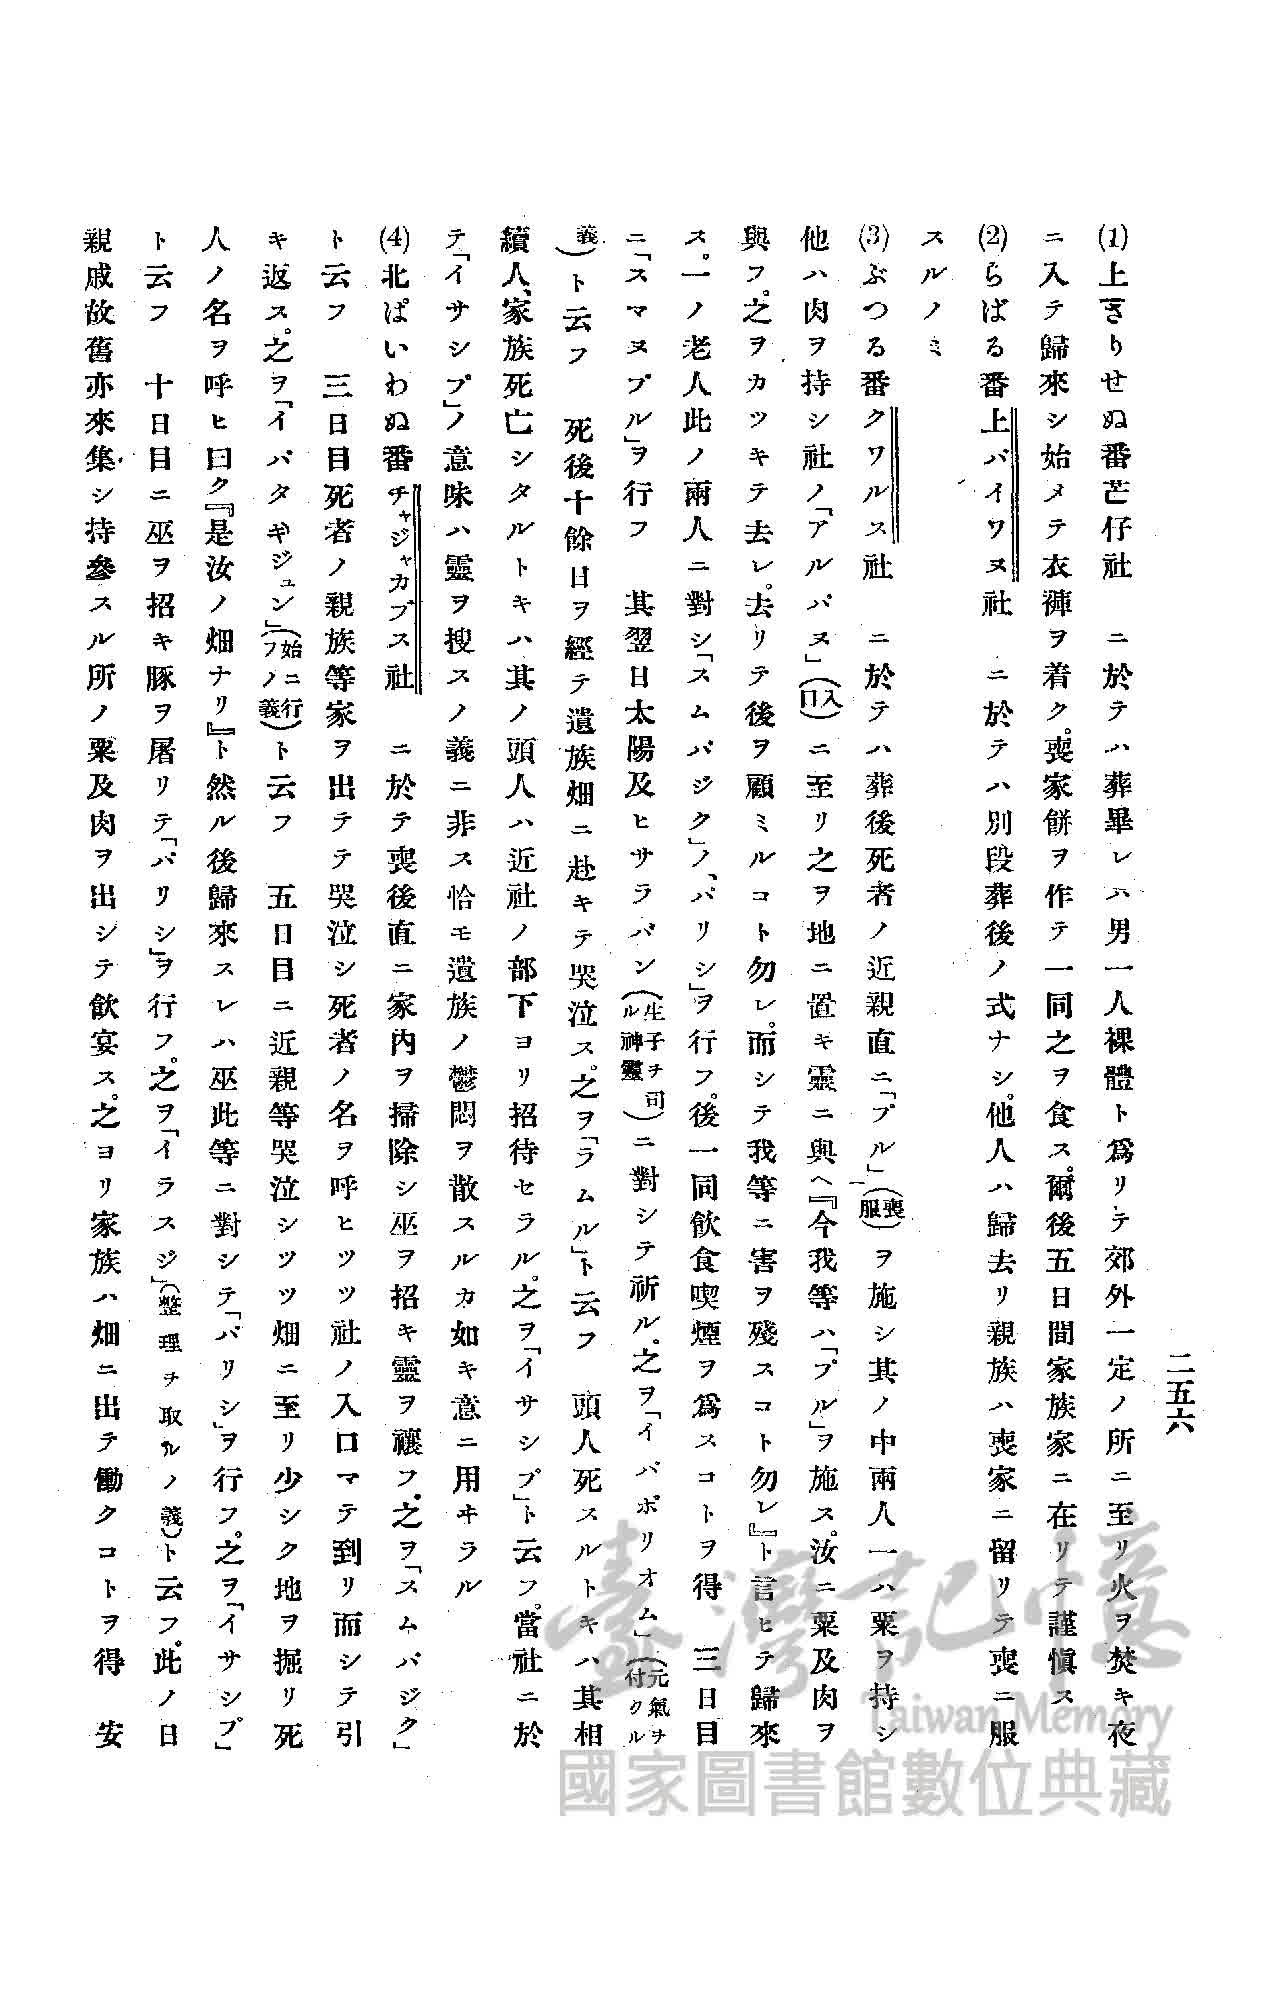 二五六
(1)上きりせぬ番芒仔社　ニ於テハ葬畢レハ男一人裸體ト爲リテ郊外一定ノ所ニ至リ火ヲ焚キ夜
ニ入テ歸來シ始メテ衣褲ヲ着ク。喪家餅ヲ作テ一同之ヲ食ス。爾後五日間家族家ニ在リテ謹愼ス
(2)らばる番上パイワヌ社　ニ於テハ別段葬後ノ式ナシ。他人ハ歸去リ親族ハ喪家ニ留リテ喪ニ服
スルノミ
(3)ぶつる番クワルス社　ニ於テハ葬後死者ノ近親直ニ「プル」(喪服)ヲ施シ其ノ中兩人一ハ粟ヲ持シ
他ハ肉ヲ持シ社ノ「アルパヌ」(入口)ニ至リ之ヲ地ニ置キ靈ニ與ヘ『今我等ハ「プル」ヲ施ス。汝ニ粟及肉ヲ
與フ。之ヲカツキテ去レ。去リテ後ヲ顧ミルコト勿レ。而シテ我等ニ害ヲ殘スコト勿レ』ト言ヒテ歸來
ス。一ノ老人此ノ兩人ニ對シ「スムバジク」ノ、「パリシ」ヲ行フ。後一同飲食喫煙ヲ爲スコトヲ得　三日目
ニ「スマヌプル」ヲ行フ　其翌日太陽及ヒサラバン(生子ヲ司ル神靈)ニ對シテ祈ル。之ヲ「イパポリオム」(元氣ヲ付クル
義)ト云フ　死後十餘日ヲ經テ遺族畑ニ赴キテ哭泣ス。之ヲ「ラムル」ト云フ　頭人死スルトキハ其相
續人、家族死亡シタルトキハ其ノ頭人ハ近社ノ部下ヨリ招待セラル。之ヲ「イサシプ」ト云フ。當社ニ於
テ「イサシプ」ノ意味ハ靈ヲ搜スノ義ニ非ス恰モ遺族ノ鬱悶ヲ散スルカ如キ意ニ用ヰラル
(4)北ぱいわぬ番チャジャカブス社　ニ於テ喪後直ニ家內ヲ掃除シ巫ヲ招キ靈ヲ禳フ。之ヲ「スムバジク」
ト云フ　三日目死者ノ親族等家ヲ出テテ哭泣シ死者ノ名ヲ呼ヒツツ社ノ入口マテ到リ而シテ引
キ返ス。之ヲ「イバタギジュン」(始ニ行フノ義)ト云フ　五日目ニ近親等哭泣シツツ畑ニ至リ少シク地ヲ掘リ死
人ノ名ヲ呼ヒ曰ク『是汝ノ畑ナリ』ト然ル後歸來スレハ巫此等ニ對シテ「パリシ」ヲ行フ。之ヲ「イサシプ」
ト云フ　十日目ニ巫ヲ招キ豚ヲ屠リテ「パリシ」ヲ行フ。之ヲ「イラスジ」(整理ヲ取ルノ義)ト云フ。此ノ日
親戚故舊亦來集シ持參スル所ノ粟及肉ヲ出シテ飲宴ス。之ヨリ家族ハ畑ニ出テ働クコトヲ得　安
臺灣記憶
Taiwan Memory
國家圖書館數位典藏